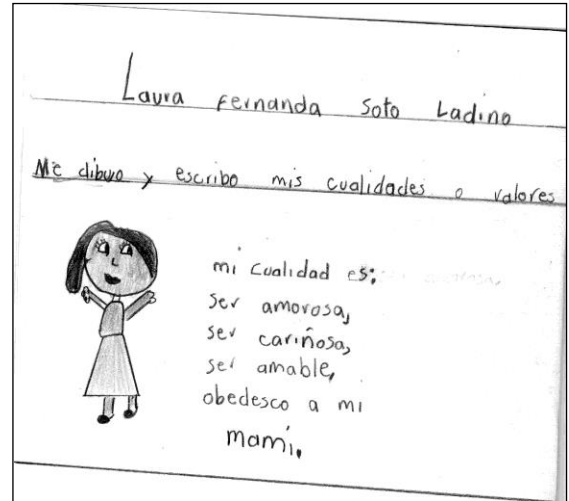 Laura Fernanda Soto Ladino
Me dibuo y escribo mis cualidades o valores
mi cualidad es:
ser amorosa,
ser cariñosa,
ser amable,
obedesco a mi
mami.